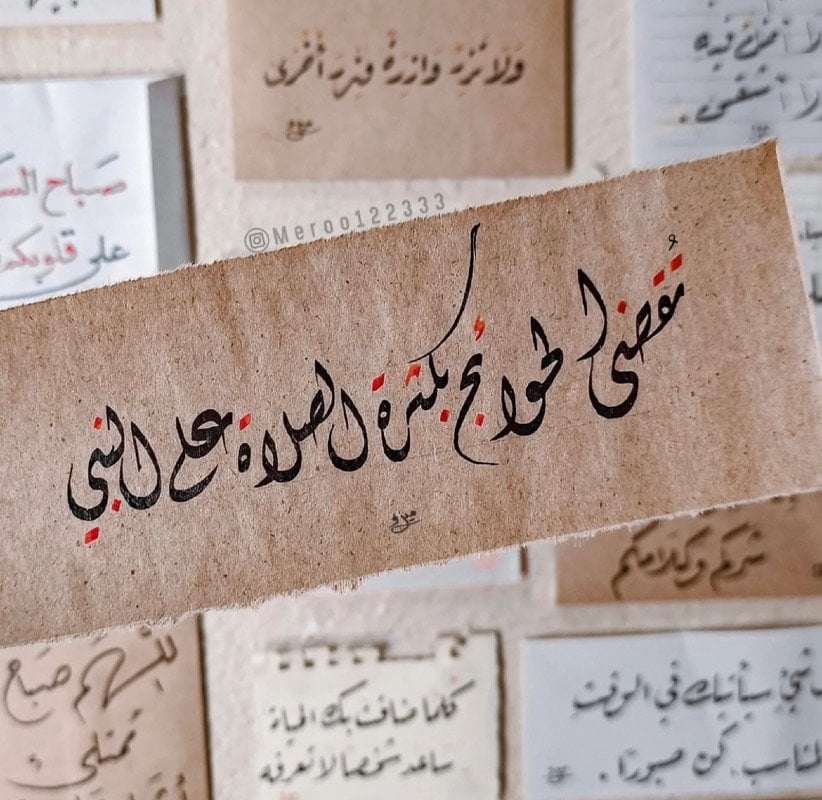 ولا تزر وازرة وزر أخرى
صباح
على قلوبكم
@Meroo122333
تُقضى الحوائج بكثرة الصلاة على النبي
شركم وكلامكم
اللهم صباح
تمتلئ
كلما ضاقت بك الحياة
ساعد شخصا لا تعرفه
سيأتيك في الوقت
كن صبورا.